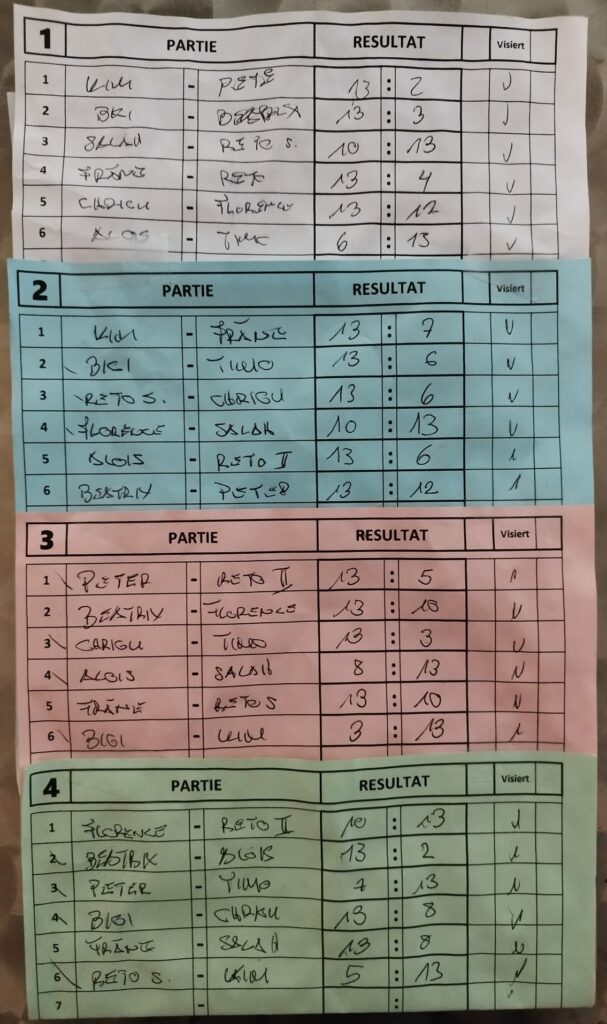 1 PARTIE RESULTAT Visiert
1 KIM - PETE 13 : 2
2 BIGI - BEATRIX 13 : 3
3 SALAH - RETO S. 10 : 13
4 FRÄNE - RETO 13 : 4
5 CHRIGU - FLORENCE 13 : 12
6 ALOIS - 6 : 13
2 PARTIE RESULTAT Visiert
1 KIM - FRÄNE 13 : 7
2 BIGI - TIMO 13 : 6
3 RETO S. - CHRIGU 13 : 6
4 FLORENCE - SALAH 10 : 13
5 ALOIS - RETO II 13 : 6
6 BEATRIX - PETER 13 : 12
3 PARTIE RESULTAT Visiert
1 PETER - RETO II 13 : 5
2 BEATRIX - FLORENCE 13 : 10
3 CHRIGU - TIMO 13 : 3
4 ALOIS - SALAH 8 : 13
5 FRÄNE - RETO S 13 : 10
6 BIGI - KIM 3 : 13
4 PARTIE RESULTAT Visiert
1 FLORENCE - RETO II 10 : 13
2 BEATRIX - ALOIS 13 : 2
3 PETER - TIMO 7 : 13
4 BIGI - CHRIGU 13 : 8
5 FRÄNE - SALAH 13 : 8
6 RETO S. - KIM 5 : 13
7 - :